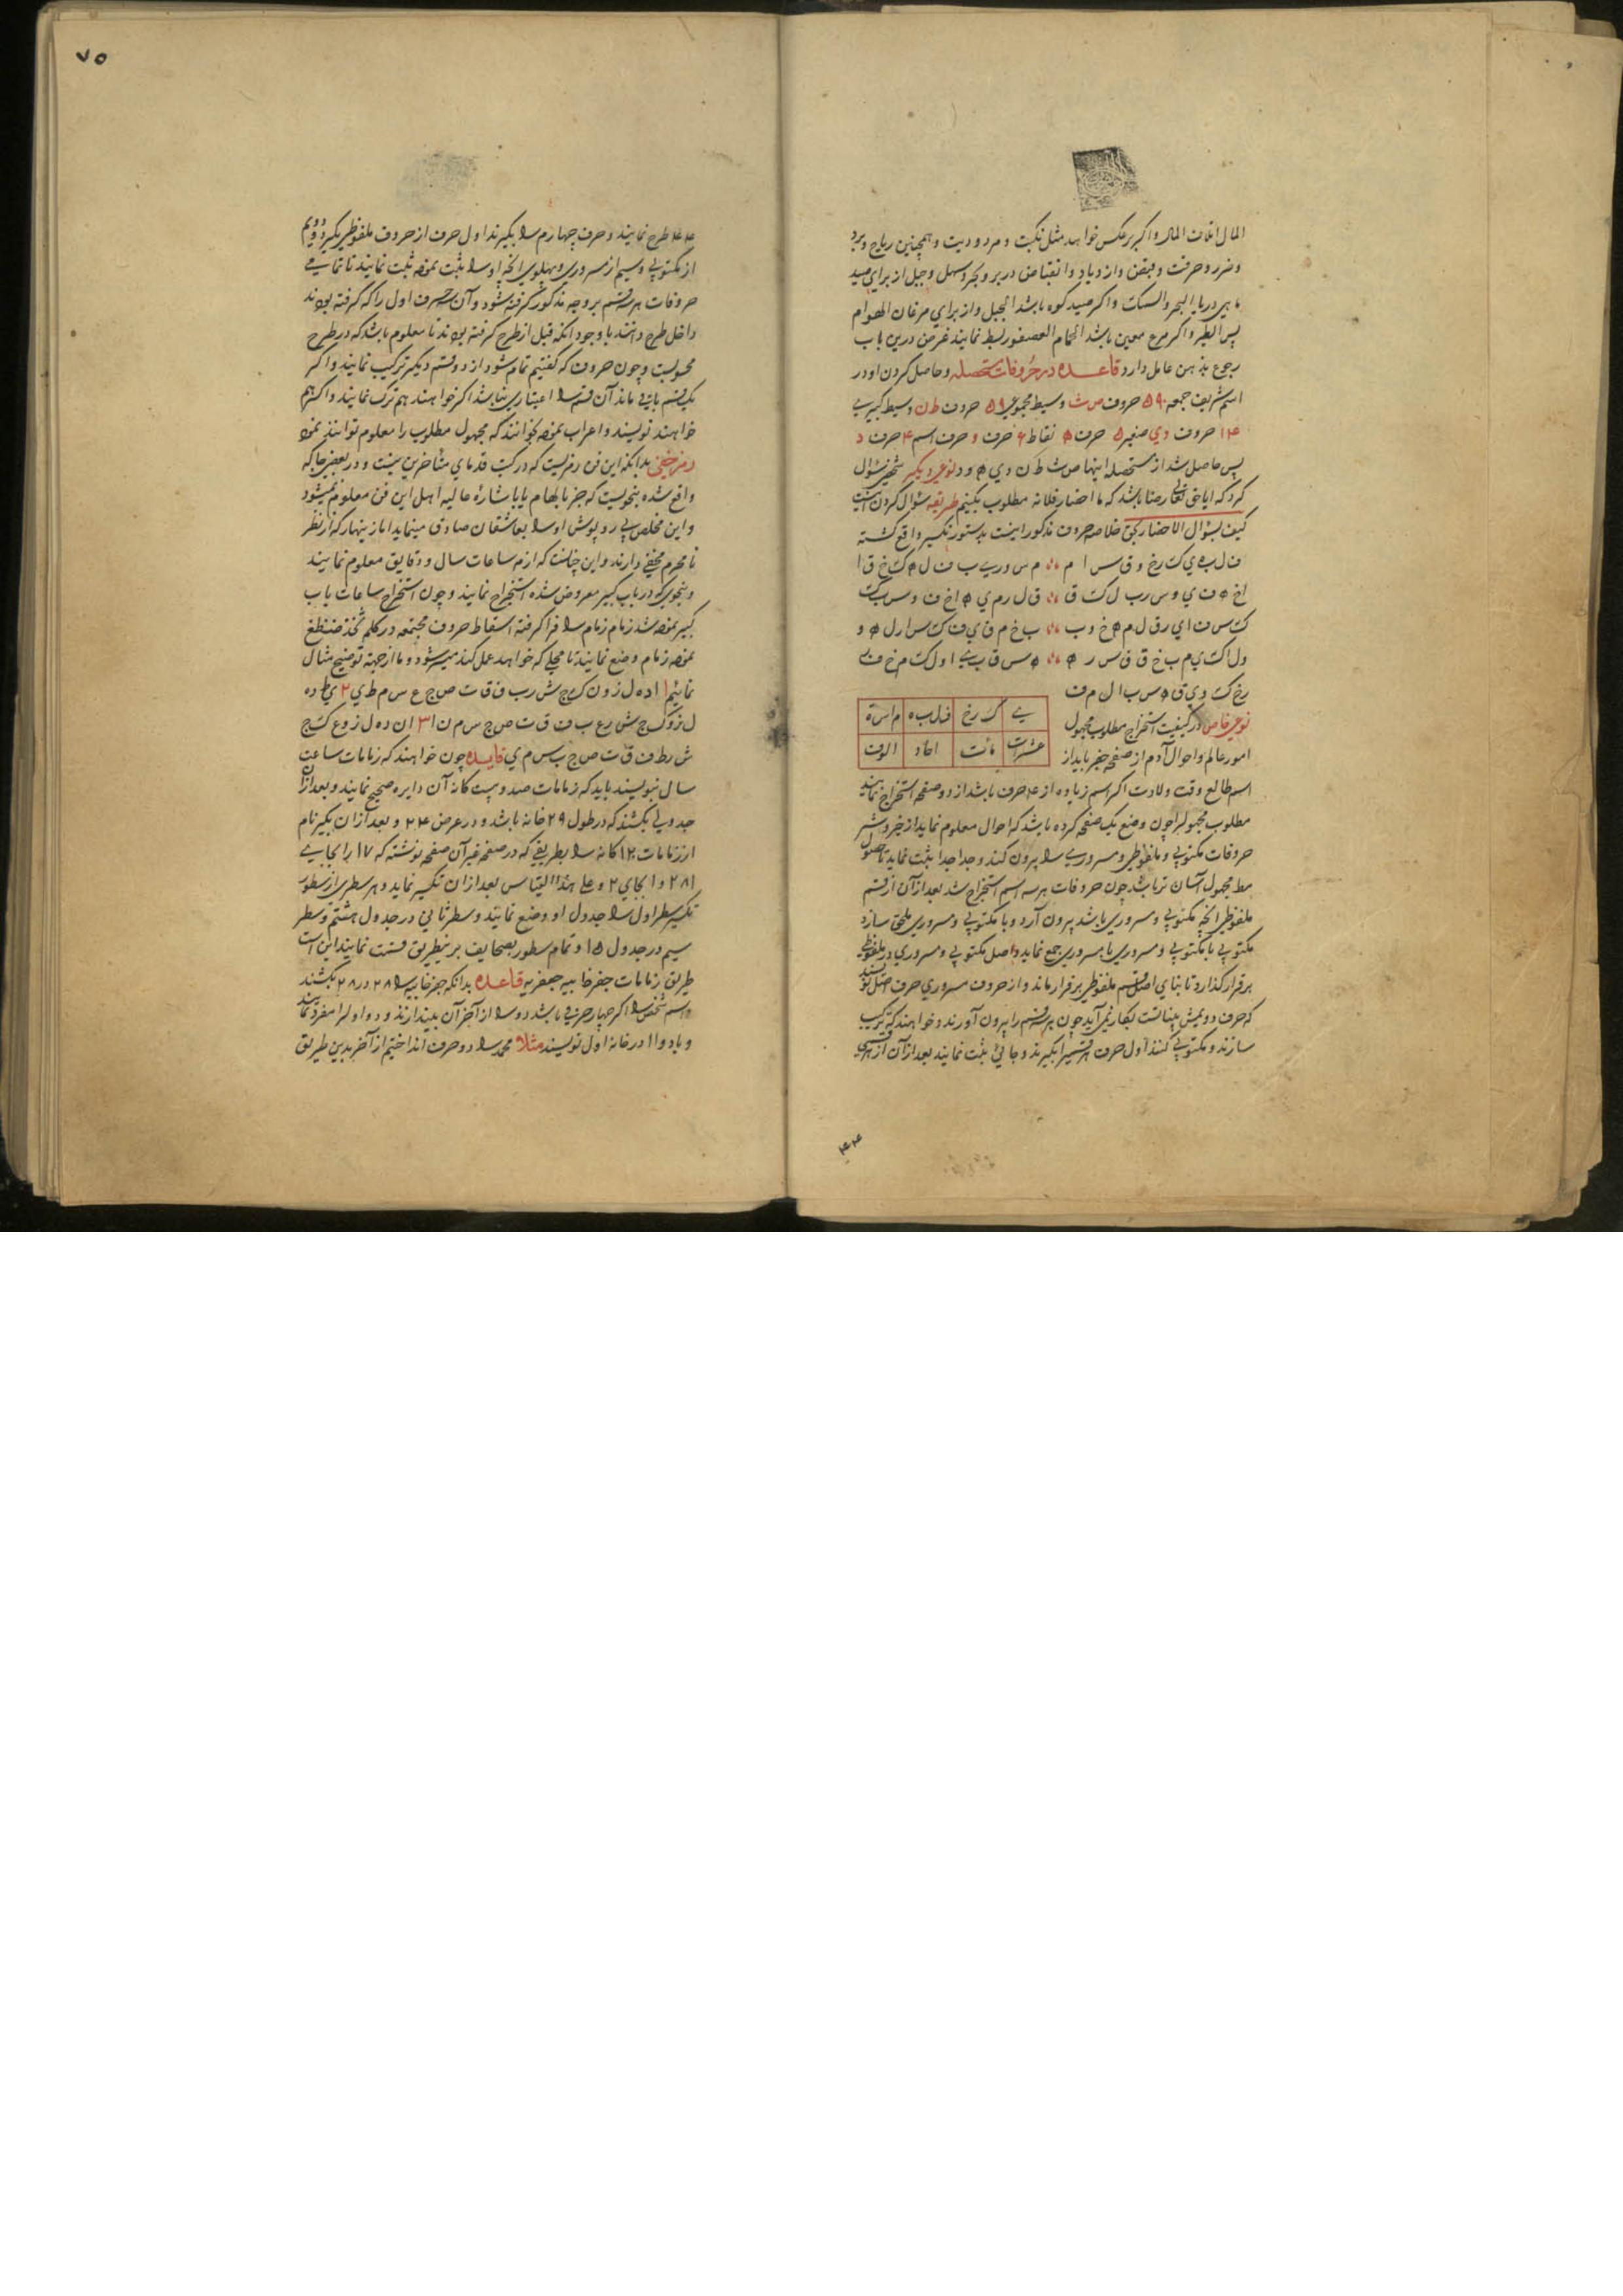 المال اتلاف المال واکر برعکس خواهد مثل نکبت و مردودیت و همچنین ریاح و برد
و ضرر و حرقت و قبض و ازدیاد و انقباض در بر و بحر و سهل و جبل از برای صید
ماهی دریا البحر والسمک واکر صید کوه باشد الجبل و از برای مرغان الهوام
پس الطیر واکر مرغ معین باشد الحمام العصفور بسط نمایند غرض درین باب
رجوع بذهن عامل دارد قاعده در حروفات مستحصله و حاصل کردن او در
اسم شریف جمعه ۵۹۰ حروف ص ث وسیط مجموعی ۵۹ حروف ط ن وسیط کبیری
۱۴ حروف د ی صغیر ۵ حرف ه نقاط ۶ حرف و حرف اسم ۴ حرف د
پس حاصل شد از مستحصله اینها ص ث ط ن د ی ه و د نوعی دیکر شخصی سؤال
کرد که ایا حق تعالی رضا باشد که ما احضار فلانه مطلوب بکنیم طریقه سؤال کردن اینست
کیف بسؤال الاحضار بحق خلاصه حروف مذکور اینست بدستور تکسیر واقع کشته
ف ل ب ه ی ک ر خ و ق س ا م م س و ر ی ب ف ل ه ک خ ق ا
ا خ ه ف ی و س ر ب ل ک ق م ق ل ر م ی ه ا خ ف و س ب ک
ک س ف ا ی ر ق ل م ه خ و ب ب خ م ق ی ف ک س ا ر ل ه و
و ل ا ک ی م ب خ ق ف س ر ه ه س ق ب ی ا و ل ک م خ ف ر
ر خ ک و ی ق ه س ب ا ل م ف
نوعی خاص در کیفیت استخراج مطلوب مجهول
امور عالم و احوال آدم از صفحه جفر باید از
ی ک ر خ ف ل ب ه م ا س ة
عشرات مآت احاد الوف
اسم طالع وقت ولادت اکر اسم زیاده از ۴ حرف باشد از دو صفحه استخراج نمایند
مطلوب مجهول را چون وضع یک صفحه کرده باشد که احوال معلوم نماید از خیر و شر
حروفات مکتوبی و ملفوظی و مسروری را بیرون کند و جدا جدا ثبت نماید تا حصول
مط مجهول آسان تر باشد چون حروفات هر سه اسم استخراج شد بعد از آن از قسم
ملفوظی انچه مکتوبی و مسروری باشد بیرون آرد و با مکتوبی و مسروری ملحق سازد
مکتوبی با مکتوبی و مسروری با مسروری جمع نماید و اصل مکتوبی و مسروری در ملفوظی
برقرار کذارد تا بنای اصل قسم ملفوظی برقرار ماند و از حروف مسروری حرف اصل نویسند
که حرف دویمش بینات است بکار نمی آید چون هر قسم را بیرون آورند و خواهند که ترکیب
سازند و مکتوبی کنند اول حرف هر قسم را بکیرند و جائی ثبت نمایند بعد از آن از هر قسمی
۴۴
۷۵
۴۴ طرح نمایند و حرف چهارم را بکیرند اول حرف از حروف ملفوظی بکیرد دویم
از مکتوبی و سیم از مسروری و پهلوی انچه اول ثبت نموده ثبت نمایند تا تمامی
حروفات هر قسم بر وجه مذکور کرفته شود و آن حرف اول را که کرفته بودند
داخل طرح دانند با وجود انکه قبل از طرح کرفته بودند تا معلوم باشد که در طرح
محسوبست و چون حروف که کفتیم تمام شود از دو قسم دیکر ترکیب نمایند و اکر
یک قسم باقی ماند آن قسم را اعتباری نباشد اکر خواهند هم ترک نمایند و اکر هم
خواهند نویسند و اعراب نموده بخوانند که مجهول مطلوب را معلوم توانند نمود
رمز خفی بدانکه این فن رمزیست که در کتب قدمای متأخرین نیست و در بعضی جا که
واقع شده بنحویست که جز بابهام یا باشارهٔ عالیه اهل این فن معلوم نمیشود
و این مخلص بی رو پوش اورا بعاشقان صادق مینماید اما زینهار که از نظر
نامحرم مخفی دارند و این چنانست که ازمه ساعات سال و دقایق معلوم نمایند
و بنحوی که در باب کبیر معروض شده استخراج نمایند و چون استخراج ساعات باب
کبیر نموده شد زمام زمام را فرا کرفته اسقاط حروف مجتمعه در کلم ثخذ ضظغ
نموده زمام وضع نمایند تا محلی که خواهد عمل کند میسر شود و ما از جهة توضیح مثال
نمائیم ۱ ا د ه ل ز و ن ک ح ش ر ب ف ق ت ص ج ع س م ط ی ۲ ی ط د ه
ل ز و ک ح ش ر ع ب ف ق ت ص ج س م ن ۳ ا ن د ه ل ز و ع ک ح
ش ر ط ف ق ت ص ج ب س م ی فایده چون خواهند که زمامات ساعت
سال نویسند باید که زمامات صد و بیست کانه آن دایره صحیح نمایند و بعد از آن
جدولی بکشند که در طول ۲۹ خانه باشد و در عرض ۲۴ و بعد از ان بکیر نام
از زمامات ۱۲ کانه را بطریقی که در صفحه غیر آن صفحه نوشته که ۱۷ را بجای
۲۸۱ و ۱ بجای ۲ و علی هذا القیاس بعد از ان تکسیر نماید و هر سطری از سطور
تکسیر سطر اول را جدول او وضع نمایند و سطر ثانی در جدول هشتم و سطر
سیم در جدول ۱۵ و تمام سطور بصحایف برینطریق قسمت نمایند این است
طریق زمامات جفر خابیه جعفریه قاعده بدانکه جفر خابیه را ۲۸ در ۲۸ بکشند
و اسم شخص را اکر چهار حرفی باشد دو را از آخر آن بیندازند و دو اول را مفرد نمایند
و با دو ا ا در خانه اول نویسند مثلا محمد را دو حرف انداختیم از آخر بدین طریق